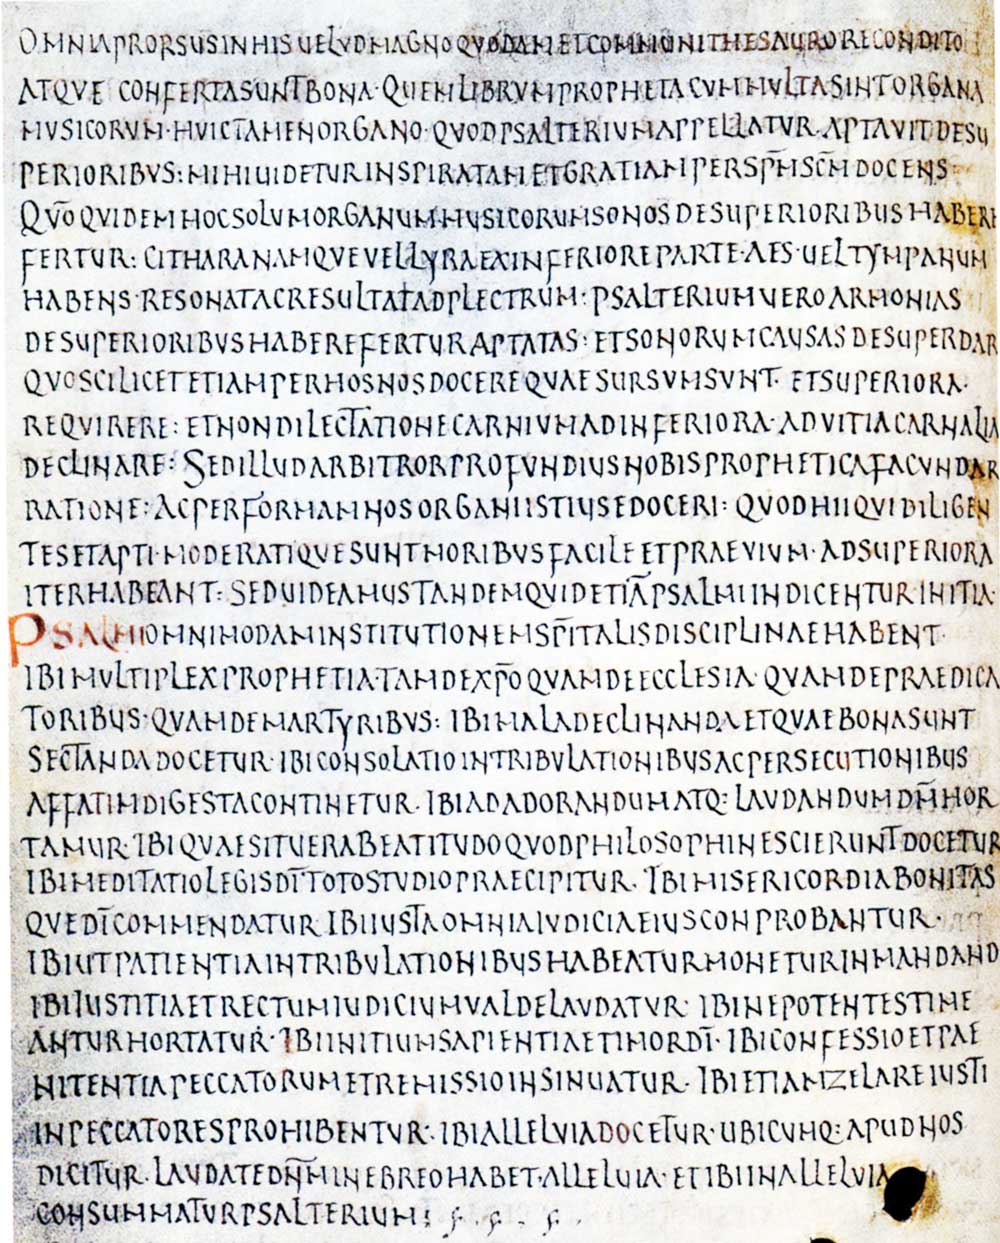 OMNIA PRORSUS IN HIS UELVD MAGNO QUODAM ET COMMUNI THESAURO RECONDITO
ATQVE CONFERTA SUNT BONA· QUEM LIBRVM PROPHETA CVM MVLTA SINT ORGANA
MVSICORVM· HVIC TAMEN ORGANO· QUOD PSALTERIVM APPELLATVR· APTAVIT DESU
PERIORIBVS: MIHI UIDETUR INSPIRATAM ET GRATIAM PER SPM̄ SCM̄ DOCENS·
QUŌ QVIDEM HOC SOLVM ORGANUM MUSICORUM SONOS DE SUPERIORIBUS HABERE
FERTUR: CITHARA NAMQVE VEL LYRA EX INFERIORE PARTE· AES UEL TYMPANUM
HABENS· RESONAT AC RESULTAT AD PLECTRUM: PSALTERIUM VERO ARMONIAS
DE SUPERIORIBVS HABERE FERTUR APTATAS: ET SONORUM CAUSAS DE SUPER DAR
QVO SCILICET ETIAM PER HOS NOS DOCERE QVAE SURSVM SVNT· ET SUPERIORA·
REQVIRERE: ET NON DILECTATIONE CARNIVM AD INFERIORA· AD VITIA CARNALIA
DECLINARE: SED ILLUD ARBITROR PROFVNDIUS NOBIS PROPHETICA FACVNDAR
RATIONE: AC PER FORMAM NOS ORGANI ISTIUS EDOCERI: QUOD HII QVI DILIGEN
TES ET APTI· MODERATIQVE SUNT MORIBVS FACILE ET PRAEVIUM· AD SUPERIORA
ITER HABEANT: SED UIDEAMUS TANDEM QVID ETIĀ PSALMI INDICENTUR INITIA·
PSALMI OMNIMODAM INSTITUTIONEM SPĪTALIS DISCIPLINAE HABENT·
IBI MVLTIPLEX PROPHETIA· TAM DE XP̄O QVAM DE ECCLESIA· QUAM DE PRAEDICA
TORIBUS· QVAM DE MARTYRIBVS: IBI MALA DECLINANDA ET QVAE BONA SUNT
SECTANDA DOCETUR· IBI CONSOLATIO IN TRIBVLATIONIBUS AC PERSECUTIONIBUS
AFFATIM DIGESTA CONTINETUR· IBI AD ADORANDUM ATQ: LAUDANDUM DM̄ HOR
TAMUR· IBI QVAE SIT VERA BEATITUDO QVOD PHILOSOPHI NESCIERUNT DOCETUR
IBI MEDITATIO LEGIS DĪ TOTO STVDIO PRAECIPITUR· IBI MISERICORDIA BONITAS
QVE DĪ COMMENDATUR IBI IUSTA OMNIA IVDICIA EIUS CONPROBANTUR·
IBI UT PATIENTIA IN TRIBVLATIONIBUS HABEATUR MONETUR IN MANDAND
IBI IUSTITIA ET RECTUM IUDICIUM VALDE LAVDATVR· IBI NE POTENTES TIME
ANTUR HORTATUR· IBI INITIUM SAPIENTIAE TIMOR DĪ· IBI CONFESSIO ET PAE
NITENTIA PECCATORUM ET REMISSIO INSINUATUR· IBI ETIAM ZELARE IUSTI
IN PECCATORES PROHIBENTVR· IBI ALLELVIA DOCETUR· UBICVMQ: APUD NOS
DICITUR· LAUDATE DNM̄ IN EBREO HABET· ALLELUIA· ET IBI IN ALLELVIA
CONSUMMATUR PSALTERIUM: